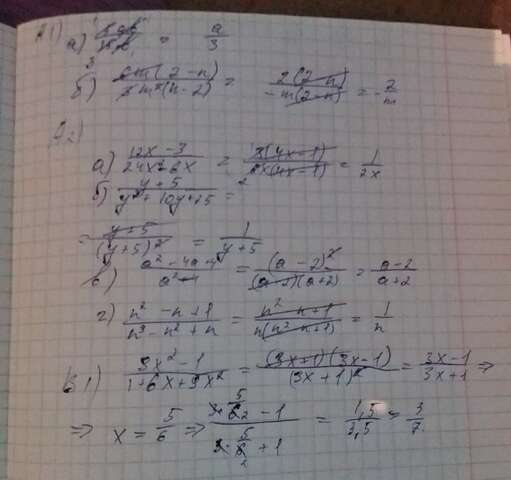 A1)
а) 5ab/15b = a/3
б) 6m(2-n)/3m²(n-2) = 2(2-n)/-m(2-n) = -2/m
A2)
а) 12x-3/24x²-6x = 3(4x-1)/6x(4x-1) = 1/2x
б) y+5/y²+10y+25 =
= y+5/(y+5)² = 1/y+5
в) a²-4a+4/a²-4 = (a-2)²/(a-2)(a+2) = a-2/a+2
г) n²-n+1/n³-n²+n = n²-n+1/n(n²-n+1) = 1/n
B1) 9x²-1/1+6x+9x² = (3x+1)(3x-1)/(3x+1)² = 3x-1/3x+1 ⇒
⇒ x = 5/6 ⇒ 3·5/6-1/3·5/6+1 = 1,5/3,5 = 3/7